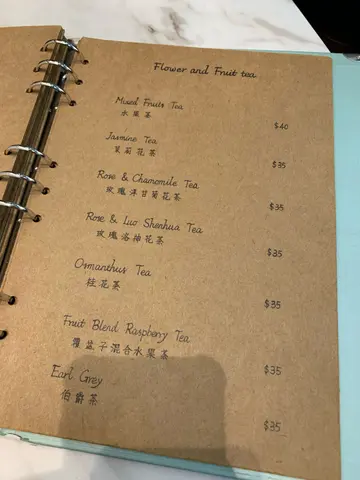 Flower and Fruit tea
Mixed Fruits Tea
水果茶
$40
Jasmine Tea
茉莉花茶
$35
Rose & Chamomile Tea
玫瑰洋甘菊花茶
$35
Rose & Luo Shenhua Tea
玫瑰洛神花茶
$35
Osmanthus Tea
桂花茶
$35
Fruit Blend Raspberry Tea
覆盆子混合水果茶
$35
Earl Grey
伯爵茶
$35